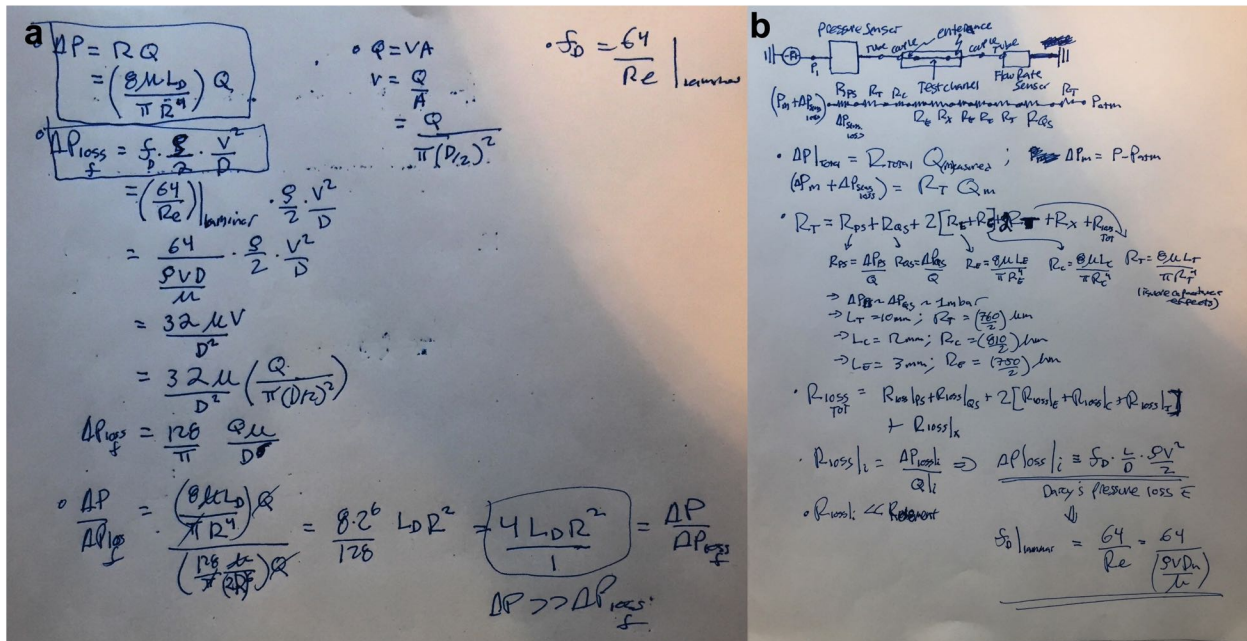 a
• ΔP = RQ
= (8μL_D / πR⁴) Q
• ΔP_loss_f = f_D · ρ/2 · V²/D
= (64/Re)|laminar · ρ/2 · V²/D
= 64 / (ρVD/μ) · ρ/2 · V²/D
= 32μV / D²
= 32μ/D² (Q / π(D/2)²)
ΔP_loss_f = 128/π Qμ/D⁶
• ΔP/ΔP_loss_f = (8μL_D / πR⁴)Q / (128/π μ/(2R)⁶)Q = 8·2⁶/128 L_D R² = 4L_D R²/1 = ΔP/ΔP_loss_f
ΔP >> ΔP_loss_f
• Q = VA
V = Q/A
= Q / π(D/2)²
• f_D = 64/Re |laminar
b
Pressure Sensor
Tube couple entrance couple Tube
P₁
Test channel Flow Rate Sensor
(P_m + ΔP_sens loss) R_PS R_T R_C R_T P_atm
ΔP_sens loss R_E R_X R_E R_C R_T R_QS
• ΔP|Total = R_Total Q_measured ; ΔP_m = P - P_atm
(ΔP_m + ΔP_sens loss) = R_T Q_m
• R_T = R_PS + R_QS + 2[R_E + R_C] + 2R_T + R_X + R_loss Tot
R_PS = ΔP_PS/Q R_QS = ΔP_QS/Q R_E = 8μL_E/πR_E⁴ R_C = 8μL_C/πR_C⁴ R_T = 8μL_T/πR_T⁴
(ignore curvature effects)
→ ΔP_PS ~ ΔP_QS ~ 1mbar
→ L_T = 10mm; R_T = (760/2) μm
→ L_C = 12mm; R_C = (810/2) μm
→ L_E = 3mm; R_E = (750/2) μm
• R_loss Tot = R_loss|PS + R_loss|QS + 2[R_loss|E + R_loss|C + R_loss|T]
+ R_loss|X
• R_loss|i = ΔP_loss|i / Q|i ⇒ ΔP loss|i ≡ f_D · L/D · ρV²/2
Darcy's pressure loss E
• R_loss|i << R_element
⇓
f_D|laminar = 64/Re = 64 / (ρVD_h/μ)